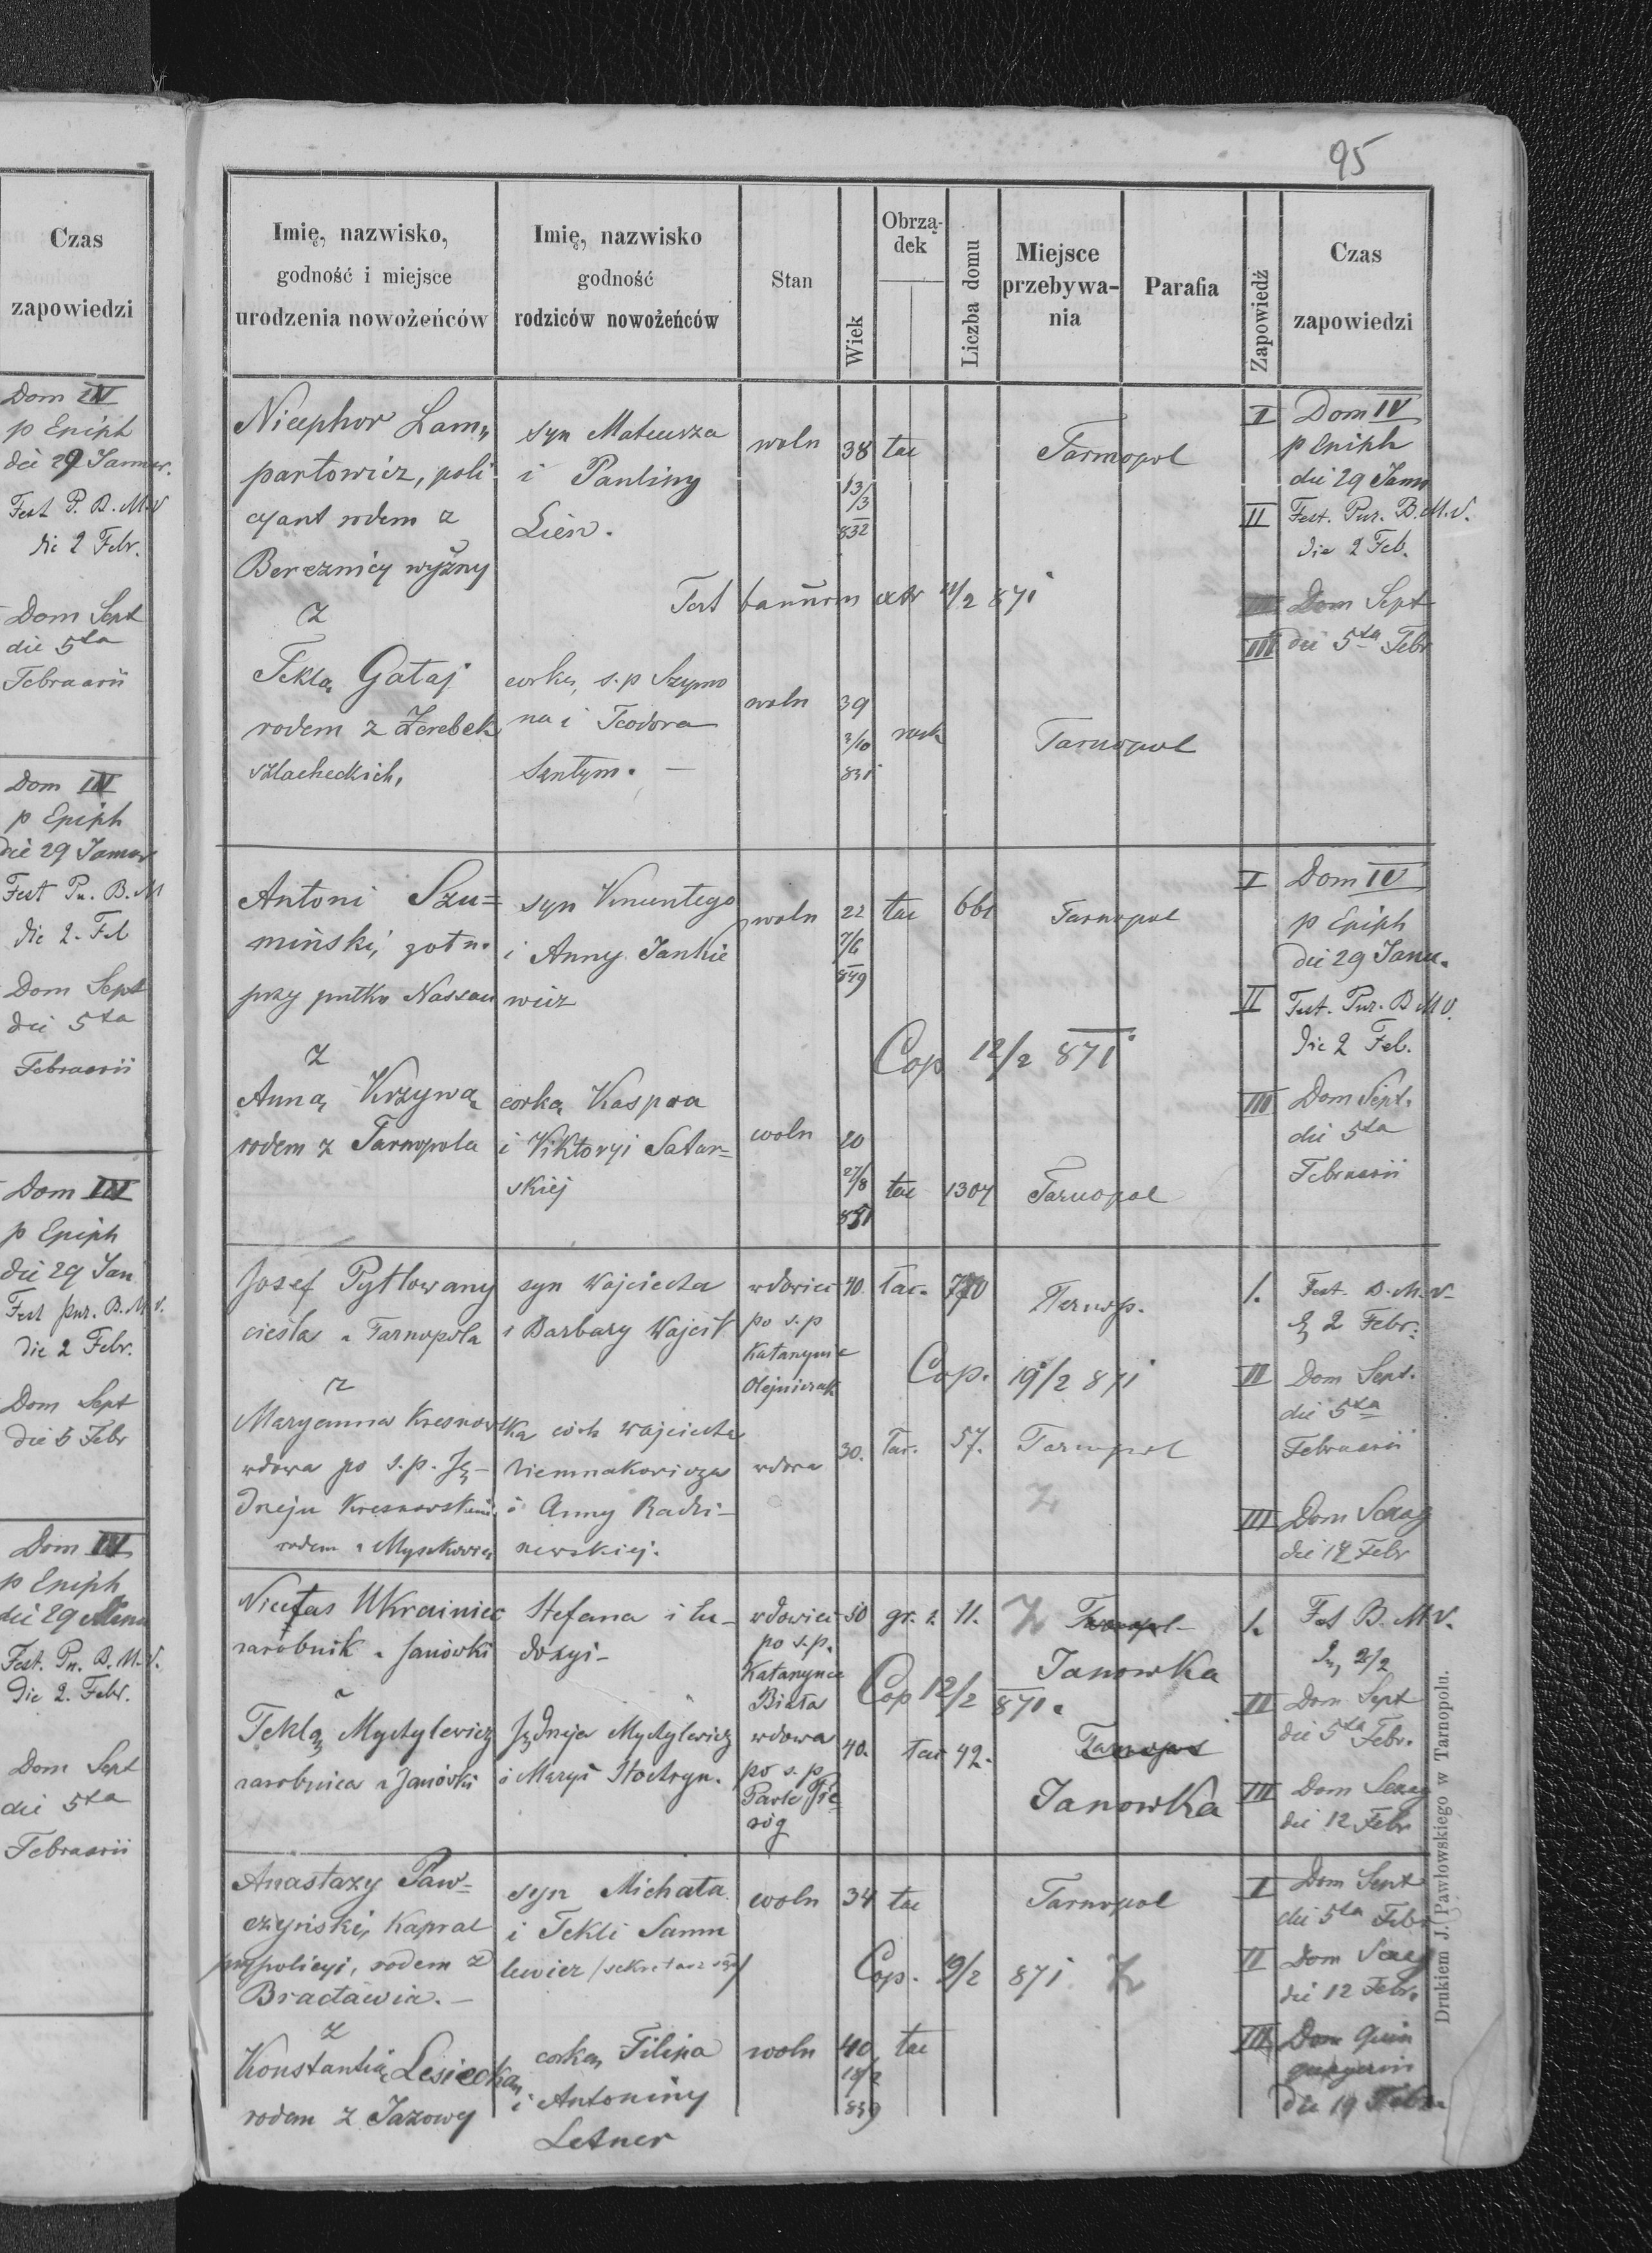 Czas
zapowiedzi
Dom IV
p Epiph
die 29 Januar.
Fest P. B. M. V
die 2 Febr.
Dom Sept
die 5ta
Februarii
Dom IV
p Epiph
die 29 Januar
Fest Pu. B. M
die 2. Feb
Dom Sept
die 5ta
Februarii
Dom IV
p Epiph
die 29 Jan
Fest pur. B. M. V.
die 2 Febr.
Dom Sept
die 5 Febr
Dom IV
p Epiph
die 29
Fest. Pu. B. M. V.
Die 2. Febr.
Dom Sept
die 5ta
Februarii
95
Imię, nazwisko,
godność i miejsce
urodzenia nowożeńców
Imię, nazwisko
godność
rodziców nowożeńców
Stan
Wiek
Obrzą-
dek
Liczba domu
Miejsce
przebywa-
nia
Parafia
Zapowiedź
Czas
zapowiedzi
Nicephor Lam„
partowicz, poli
cyant rodem z
Bereznicy wyżny
z
Teklą Gataj
rodem z Zerebek
szlacheckich,
syn Mateusza
i Pauliny
Lien.
Test bannom extr 11/2 871
corką, s.p Szymo
na i Teodora
Sentym. —
woln 38 tac Tarnopol
13/3
832
woln 39 rusk Tarnopol
2/10
831
I Dom IV
p Epiph
die 29 Janu
II Fest. Pur. B. M. V.
die 2 Feb.
Dom Sept
III die 5ta Febr
Antoni Szu=
miński, żołn.
przy pułku Nassau
z
Anną Krzywą
rodem z Tarnopola
syn Vincentego
i Anny Jankie
wicz
corką Kaspra
i Viktoryi Satar=
skiej
woln 22 tac 661 Tarnopol
7/6
849
Cop 12/2 871
woln 20
27/8 tac 1307 Tarnopol
851
I Dom IV
p Epiph
die 29 Janu.
II Fest. Pur. B M V.
die 2 Feb.
III Dom Sept.
die 5ta
Februarii
Josef Pytlowany
cieśla z Tarnopola
z
Maryanna Kresnowska
wdowa po s.p. Ję-
dreju Kresnowskim
rodem z Myszkowic
syn Wojciecha
i Barbary Wajcit
córk Wojciecha
Ziemnakowicza
i Anny Radzi-
niewskiej.
wdowiec 40. tac. 770 Tarnop.
po s.p
Katarynie
Olejniczak
Cop. 19/2 871
wdowa 30. Tac. 57. Tarnopol
z
1. Fest. B. M. V-
d 2 Febr.
II Dom Sept.
die 5ta
Februarii
III Dom Sexag
die 12 Febr
Nicetas Ukrainiec
zarobnik z Janówki
z
Teklą Mychylewicz
zarobnica z Janówki
Stefana i Eu-
dozyi-
Jędreja Mychylewicz
i Maryi
wdowiec 50 gr. r. 11. z Tarnopol
po s.p. Janowka
Katarynie
Biała
Cop 12/2 871.
wdowa 40. tac 42. Tarnopol
po s.p Janowka
Pawle Pie-
róg
1. Fest B. M. V.
d. 2/2
II Dom Sept
die 5ta Febr.
III Dom Sexag
die 12 Febr
Anastazy Paw=
czyński, Kapral
przy policyi, rodem z
Bracławia. —
z
Konstantią Lesiecką
rodem z Jazowy
syn Michała
i Tekli Samu
lewicz
corką Filipa
i Antoniny
Letner
woln 34 tac Tarnopol
Cop. 19/2 871 z
woln 40 tac
18/2
839
I Dom Sept
die 5ta Febr
II Dom Sexag
die 12 Febr.
III Dom Quin
die 19 Febr
Drukiem J. Pawłowskiego w Tarnopolu.